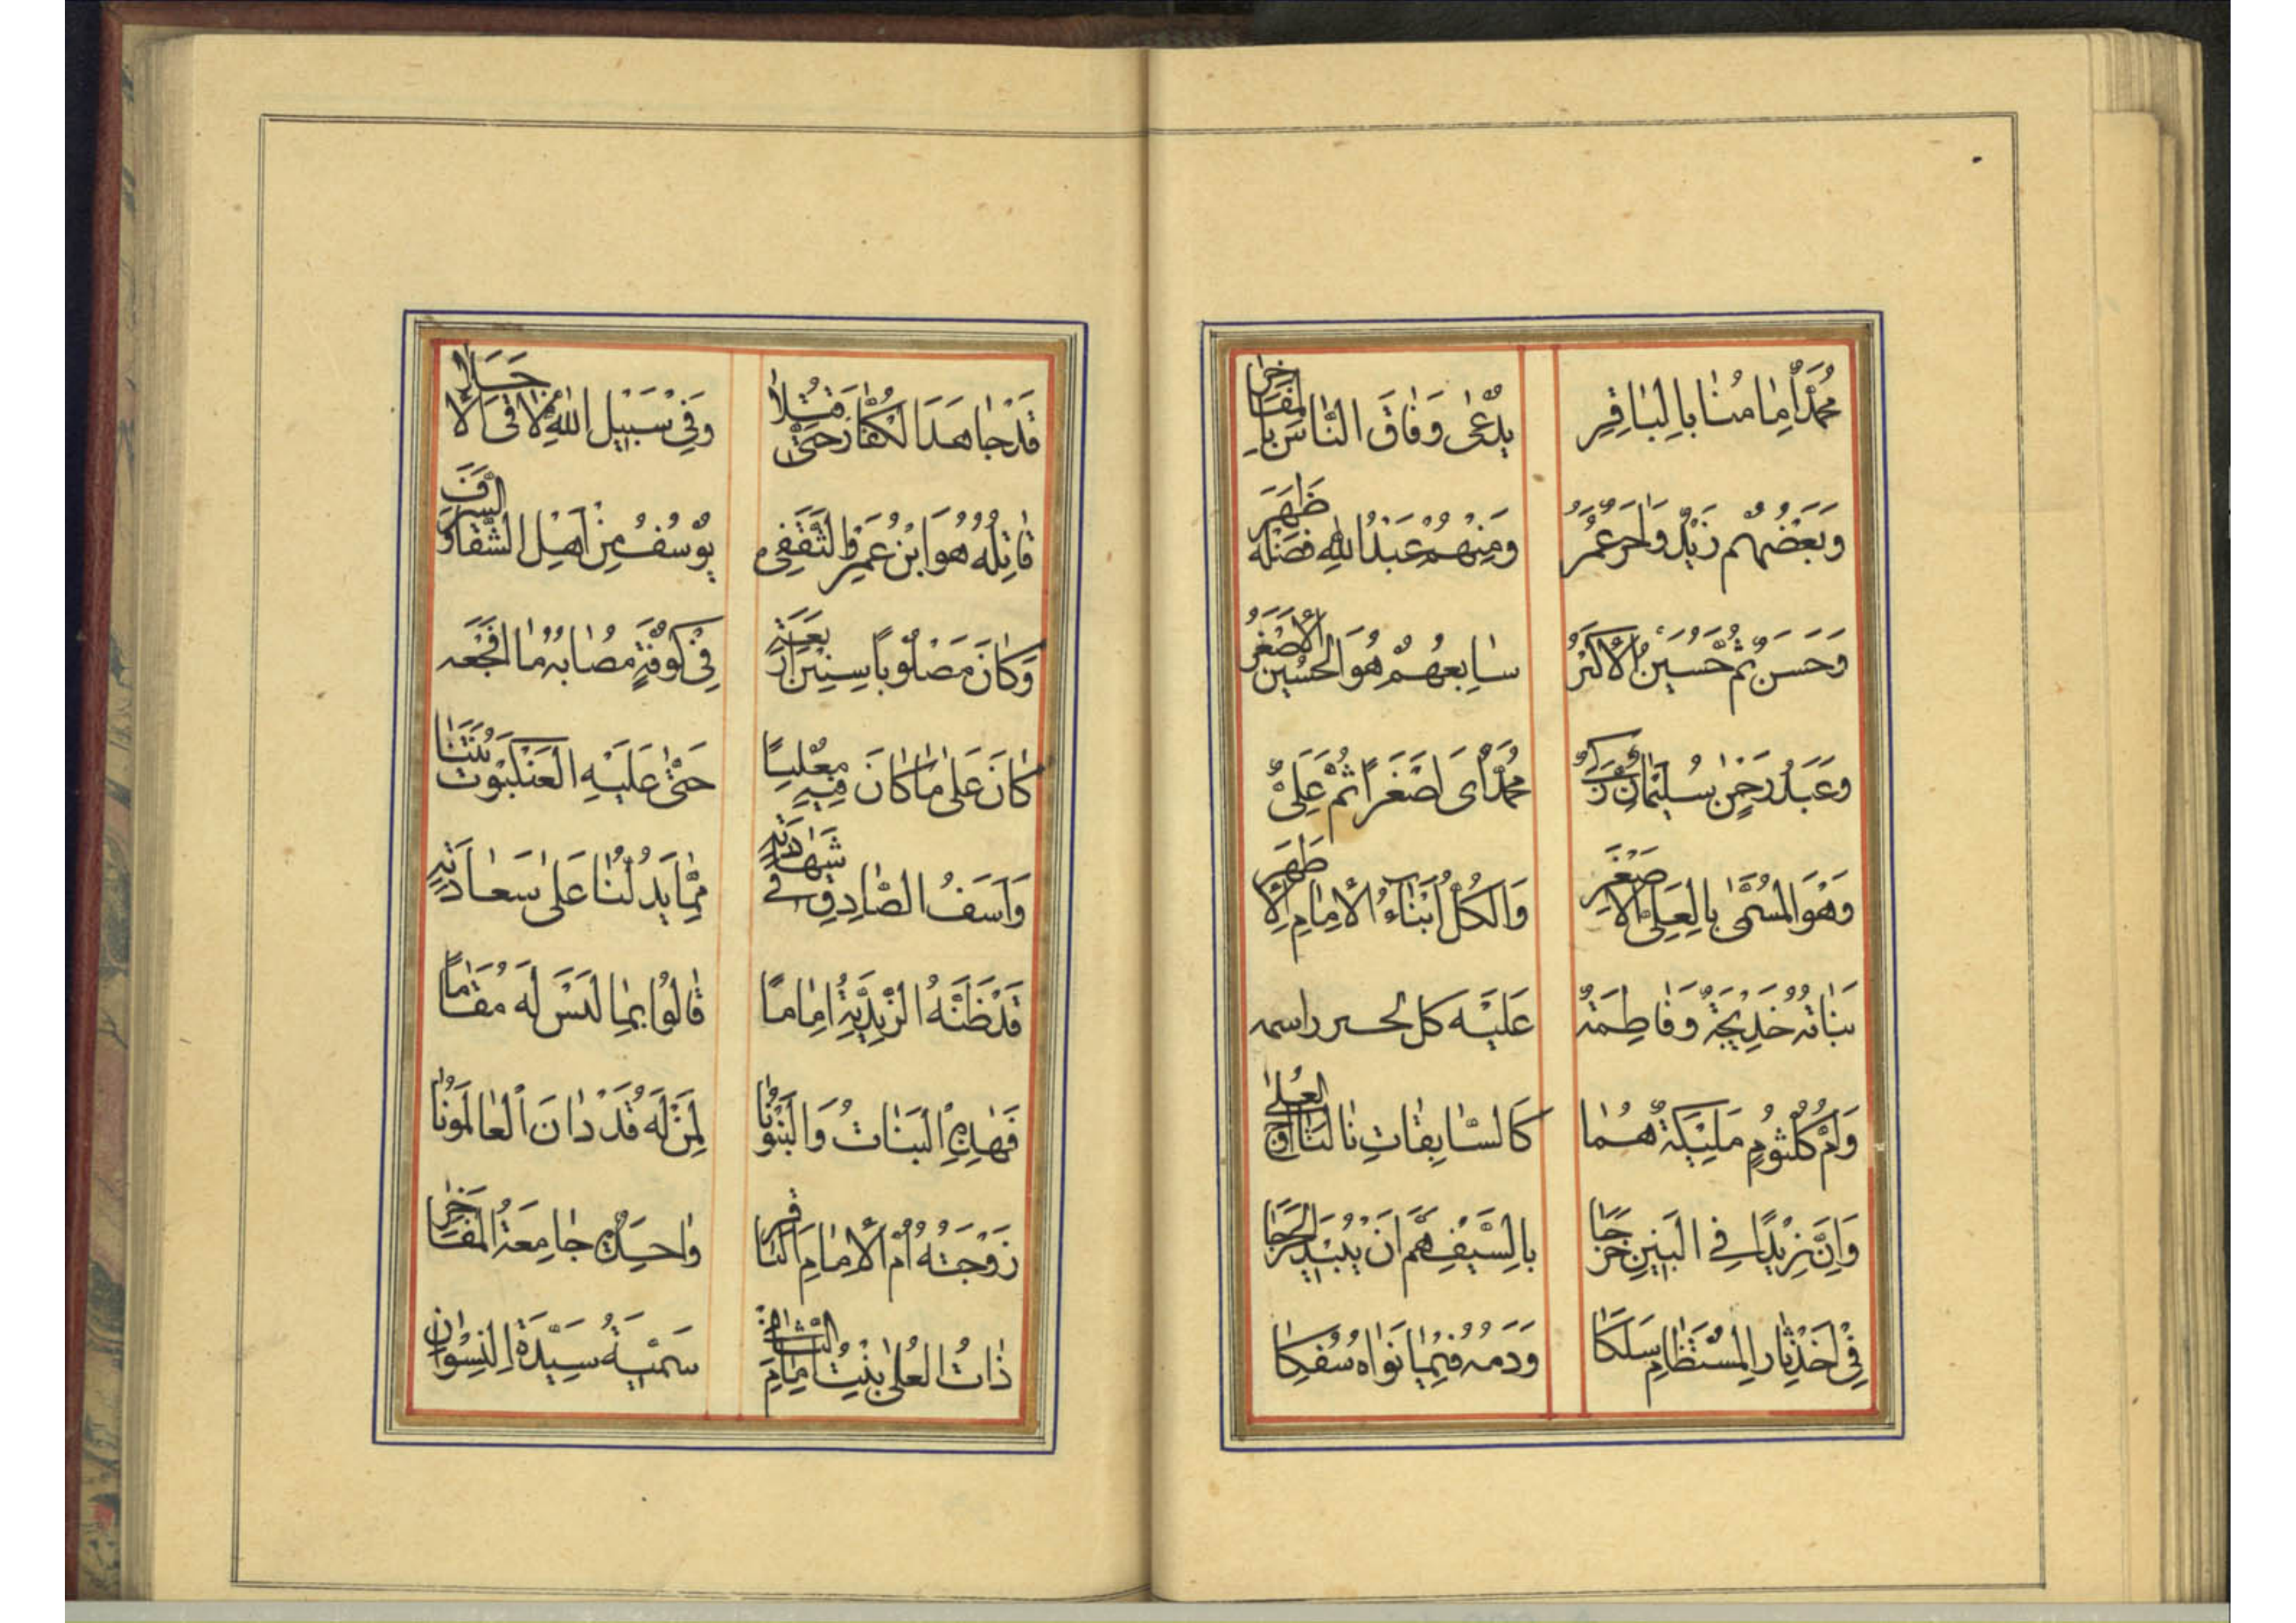 مُحَمَّدٌ اِمَامُنَا بِالْبَاقِرِ
يُدْعٰى وَفَاقَ النَّاسَ بِالْمَفَاخِرِ
وَبَعْضُهُم زَيْدٌ وَاٰخَرُ عُمَرُ
وَمِنْهُمُ عَبْدُ اللهِ فَضْلُهُ ظَهَرَ
وَحَسَنٌ ثُمَّ حُسَيْنُ الْأَكْبَرُ
سَابِعُهُمْ هُوَ الْحُسَيْنُ الْأَصْغَرُ
وَعَبْدُ رَحْمٰنٍ سُلَيْمَانُ زَكِيٌّ
مُحَمَّدٌ اَى اَصْغَرًا ثُمَّ عَلِىٌّ
وَهُوَ الْمُسَمّٰى بِالْعَلِىِّ الْأَصْغَرِ
وَالْكُلُّ اَبْنَاءُ الْاِمَامِ الْأَطْهَرِ
بَنَاتُهُ خَدِيْجَةٌ وَفَاطِمَةٌ
عَلَيْهِ كل
وَاُمُّ كُلْثُومٍ مَلِيْكَةٌ هُمَا
كَالسَّابِقَاتِ نَالَتَا اَوْجَ الْعُلٰى
وَاِنَّ زَيْدًا فِي الْبَنِيْنِ خَرَجَا
بِالسَّيْفِ هَمَّ اَنْ يُبِيْدَ الْحَرَجَا
فِىْ اَخْذِ ثَارِ الْمُسْتَظَامِ سَلَكَا
وَدَمُهُ فِيْمَا نَوَاهُ سُفِكَا
قَدْ جَاهَدَ الْكُفَّارَ حَتّٰى قُتِلَا
وَفِىْ سَبِيْلِ اللهِ لَاقَى الْأَجَلَا
قَاتِلُهُ هُوَ ابْنُ عُمَرِ والثَّقَفِى
يُوْسُفُ مِنْ اَهْلِ الشَّقَا وَالسَّرَفِ
وَكَانَ مَصْلُوْبًا سِنِيْنَ اَرْبَعَة
فِىْ كُوْفَةٍ مُصَابُهُ مَا اَفْجَعَه
كَانَ عَلٰى مَا كَانَ فِيْهِ مُعْلِيًا
حَتّٰى عَلَيْهِ الْعَنْكَبُوْتُ بَنَتَا
وَاَسَفُ الصَّادِقِ فِي شَهَادَتِهِ
مِمَّا يَدُلُّنَا عَلٰى سَعَادَتِهِ
قَدْ ظَنَّهُ الزَّيْدِيَّةُ اِمَامًا
قَالُوْا بِمَا لَيْسَ لَهُ مَقَامًا
فَهٰذِهِ الْبَنَاتُ وَالْبَنُوْنَا
لِمَنْ لَهُ قَدْ دَانَ الْعَالَمُوْنَا
زَوْجَتُهُ اُمُّ الْاِمَامِ الْبَاقِرِ
وَاحِدَةٌ جَامِعَةُ الْمَفَاخِرِ
ذَاتُ الْعُلٰى بِنْتُ اِمَامِ الثَّانِ
سَمِيَّةُ سَيِّدَةِ النِّسْوَانِ